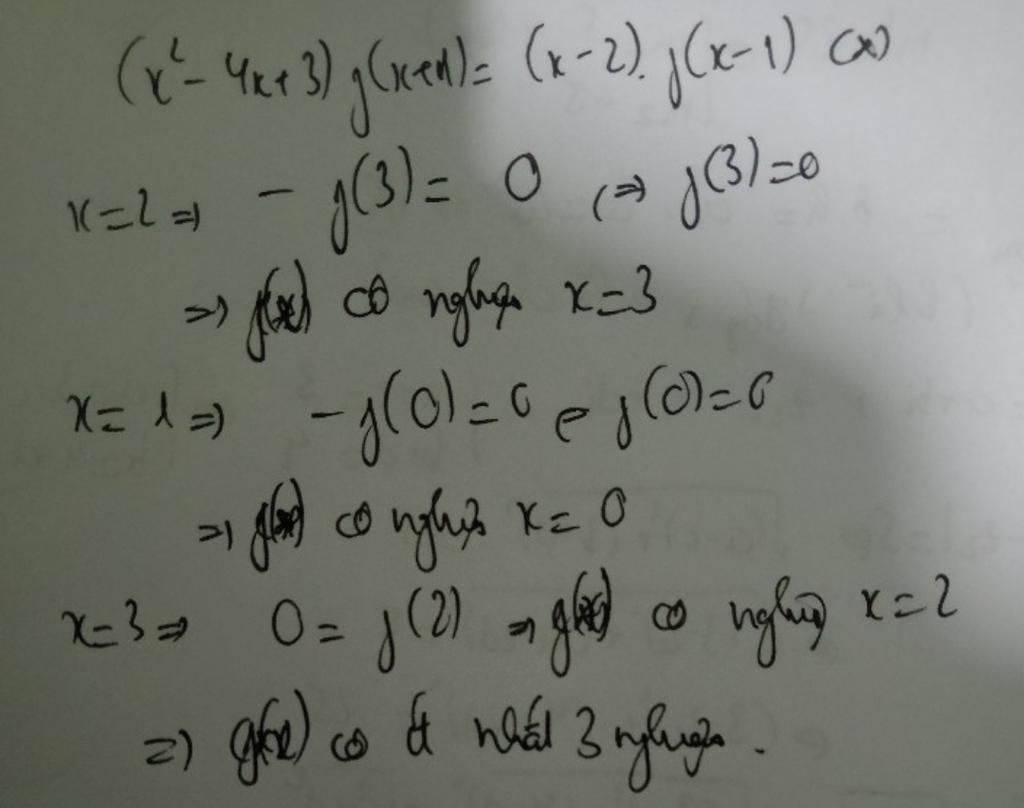 (x² - 4x + 3) g(x+1) = (x-2). g(x-1) (x)
x = 2 ⇒ - g(3) = 0 (⇒ g(3) = 0
⇒ g(x) có nghiệm x = 3
x = 1 ⇒ - g(0) = 0 ⇔ g(0) = 0
⇒ g(x) có nghiệm x = 0
x = 3 ⇒ 0 = g(2) ⇒ g(x) có nghiệm x = 2
⇒ g(x) có ít nhất 3 nghiệm.